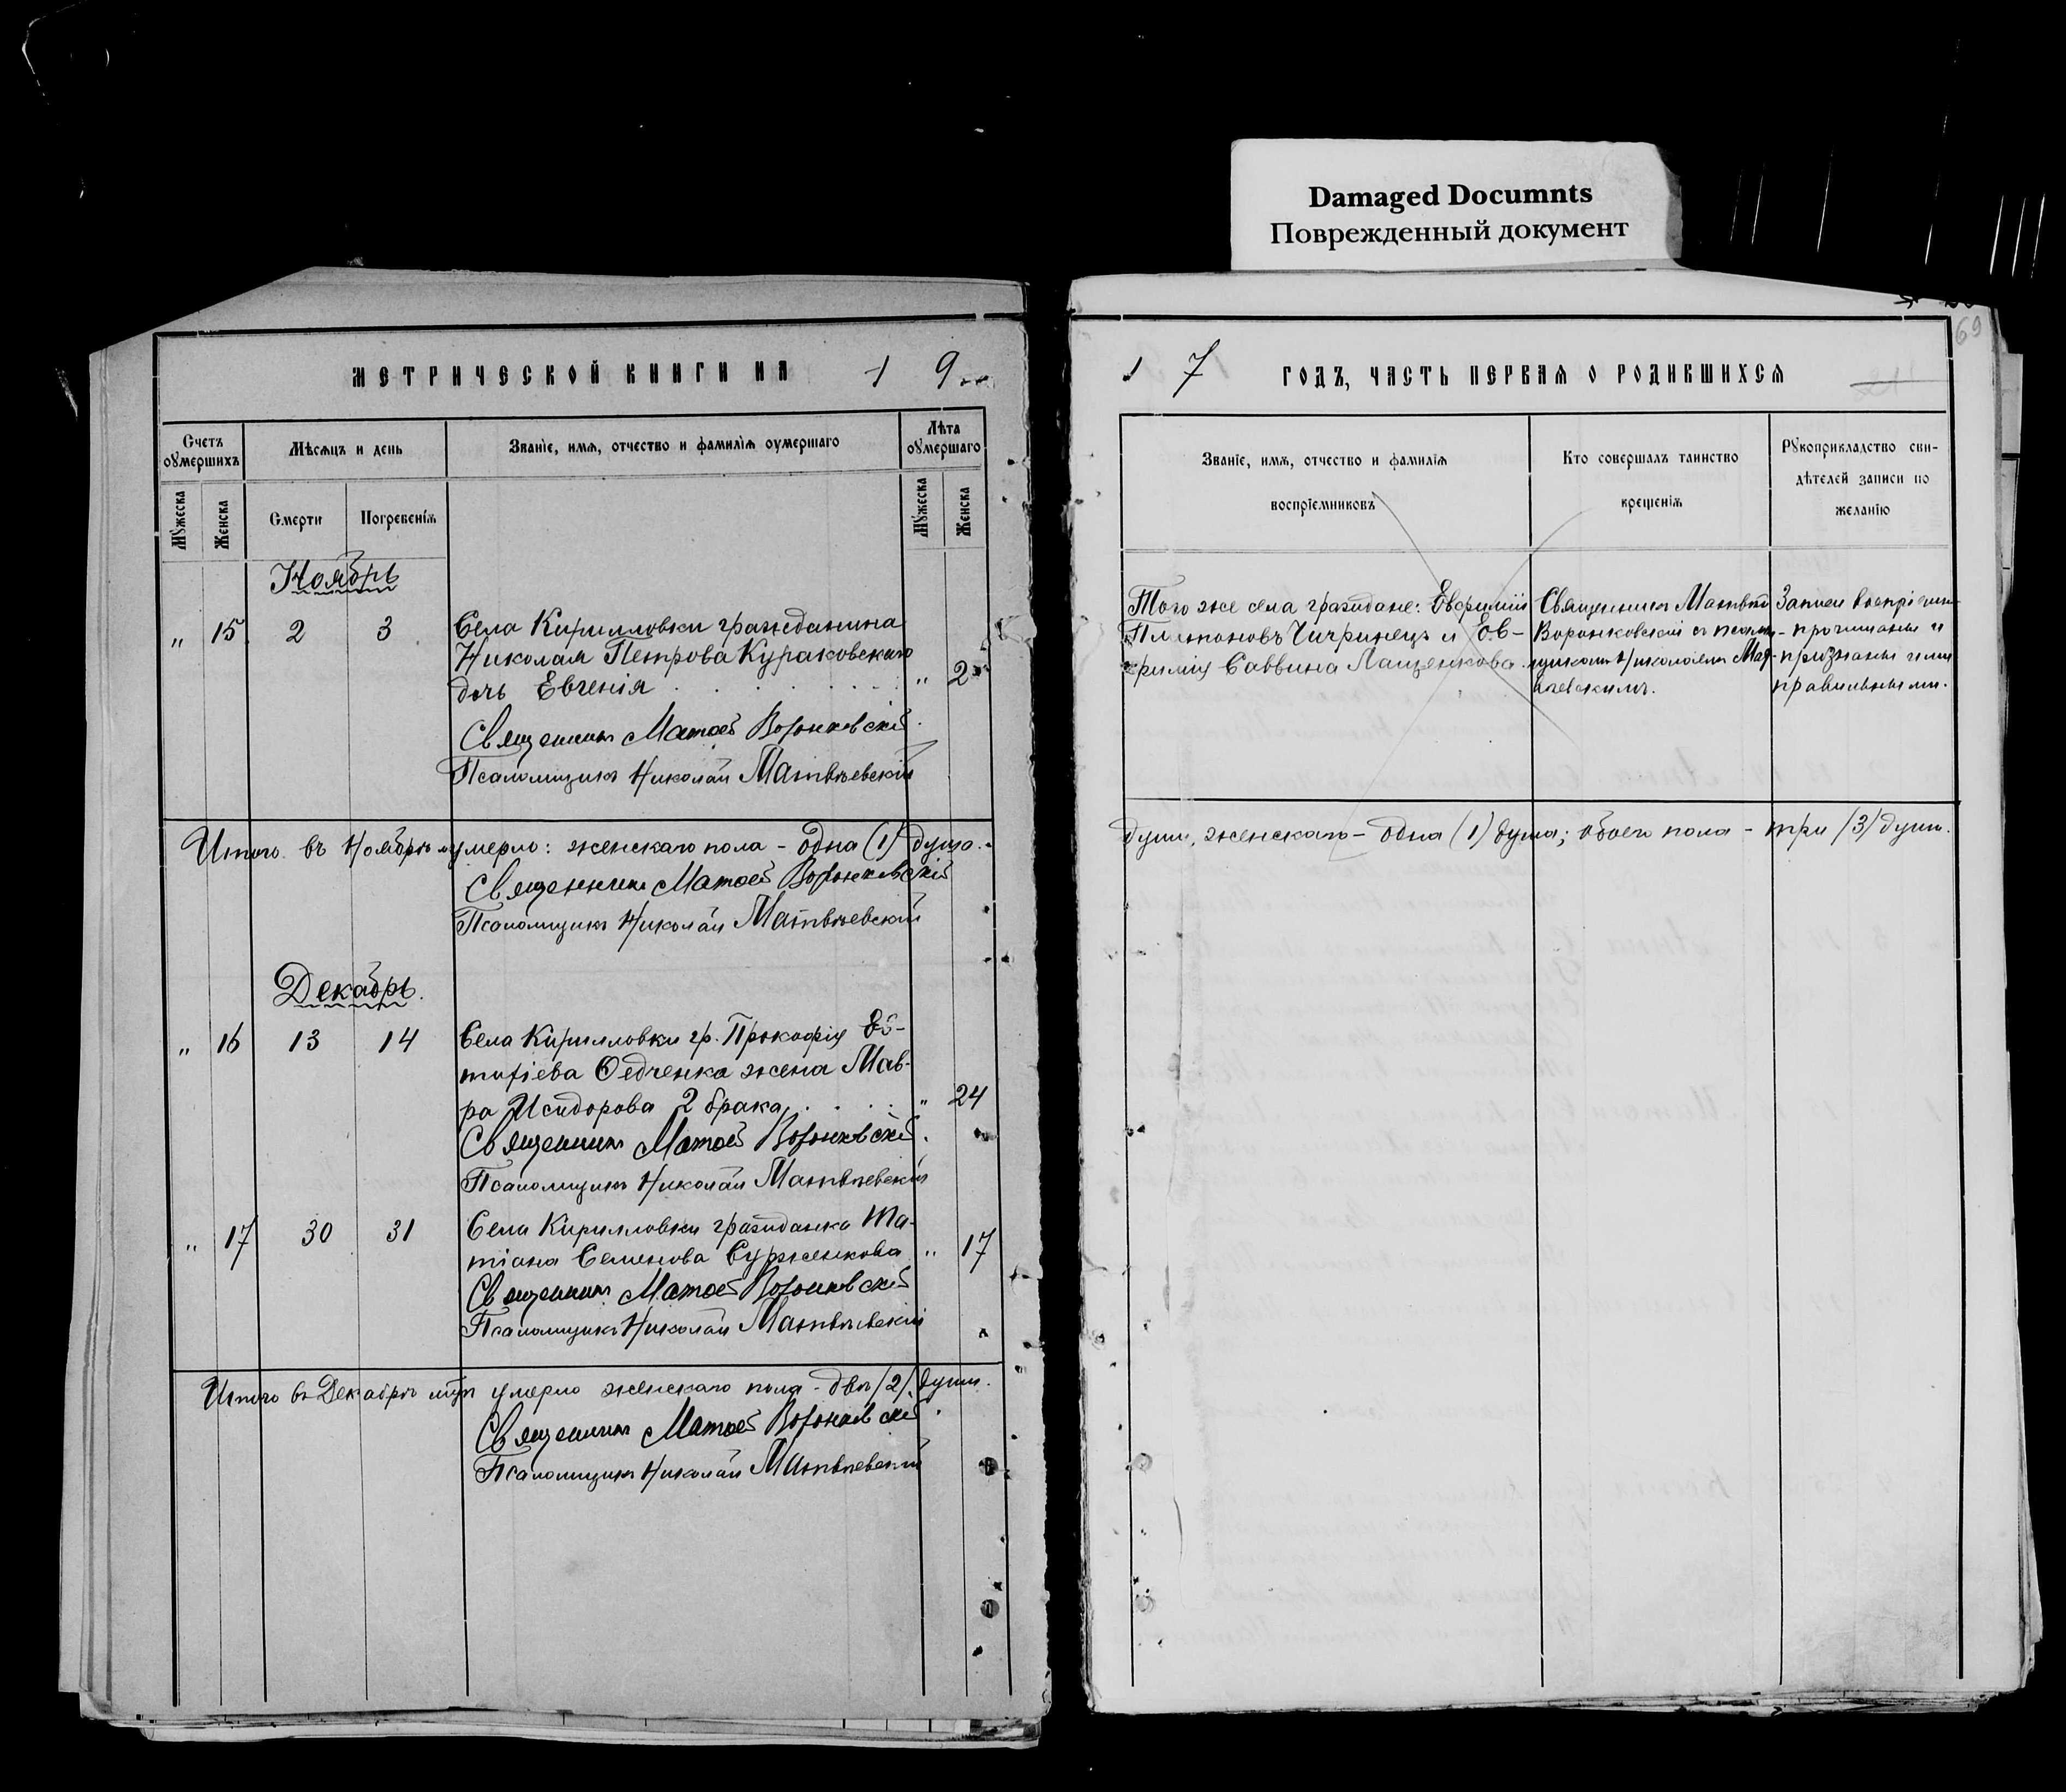 Damaged Documnts
Поврежденный документ
МЕТРИЧЕСКОЙ КНИГИ НА 19
Счетъ оумершихъ
Мѣсяцъ и день
Званіе, имя, отчество и фамилія оумершаго
Лѣта оумершаго
Мужеска
Женска
Смерти
Погребенія
Мужеска
Женска
Ноябрь
„ 15 2 3 Села Кирилловки гражданина
Николая Петрова Кураковскаго
дочь Евгенія „ 2
Священникъ Матѳей Воронковскій
Псаломщикъ Николай Матвѣевскій
Итого въ Ноябрѣ умерло: женскаго пола - одна (1) душа.
Священникъ Матѳей Воронковскій
Псаломщикъ Николай Матвѣевскій
Декабрь.
„ 16 13 14 Села Кирилловки гр. Прокофія
Ѳедченка жена Мав-
ра Исидорова 2 брака „ 24
Священникъ Матѳей Воронковскій.
Псаломщикъ Николай Матвѣевскій
„ 17 30 31 Села Кирилловки гражданка Та-
тіана Семенова Сурженкова „ 17
Священникъ Матѳей Воронковскій
Псаломщикъ Николай Матвѣевскій
Итого въ Декабрѣ м-цѣ умерло женскаго пола - двѣ /2/ души.
Священникъ Матѳей Воронковскій.
Псаломщикъ Николай Матвѣевскій
69
1 7 ГОДЪ, ЧАСТЬ ПЕРВАЯ О РОДИВШИХСЯ
Званіе, имя, отчество и фамилія
воспріемниковъ
Кто совершалъ таинство
крещенія
Рукоприкладство сви-
дѣтелей записи по
желанію
Того же села граждане: Евфимій
Чигринецъ и Ев-
фимія Саввина Лащенкова.
Священникъ Матвѣй
Воронковскій съ псалом-
щикомъ Николаемъ Мат-
вѣевскимъ.
Записи воспріемн-
прочитаны и
признаны ими
правильными.
души, женскаго - одна (1) душа; обоего пола - три /3/ души.